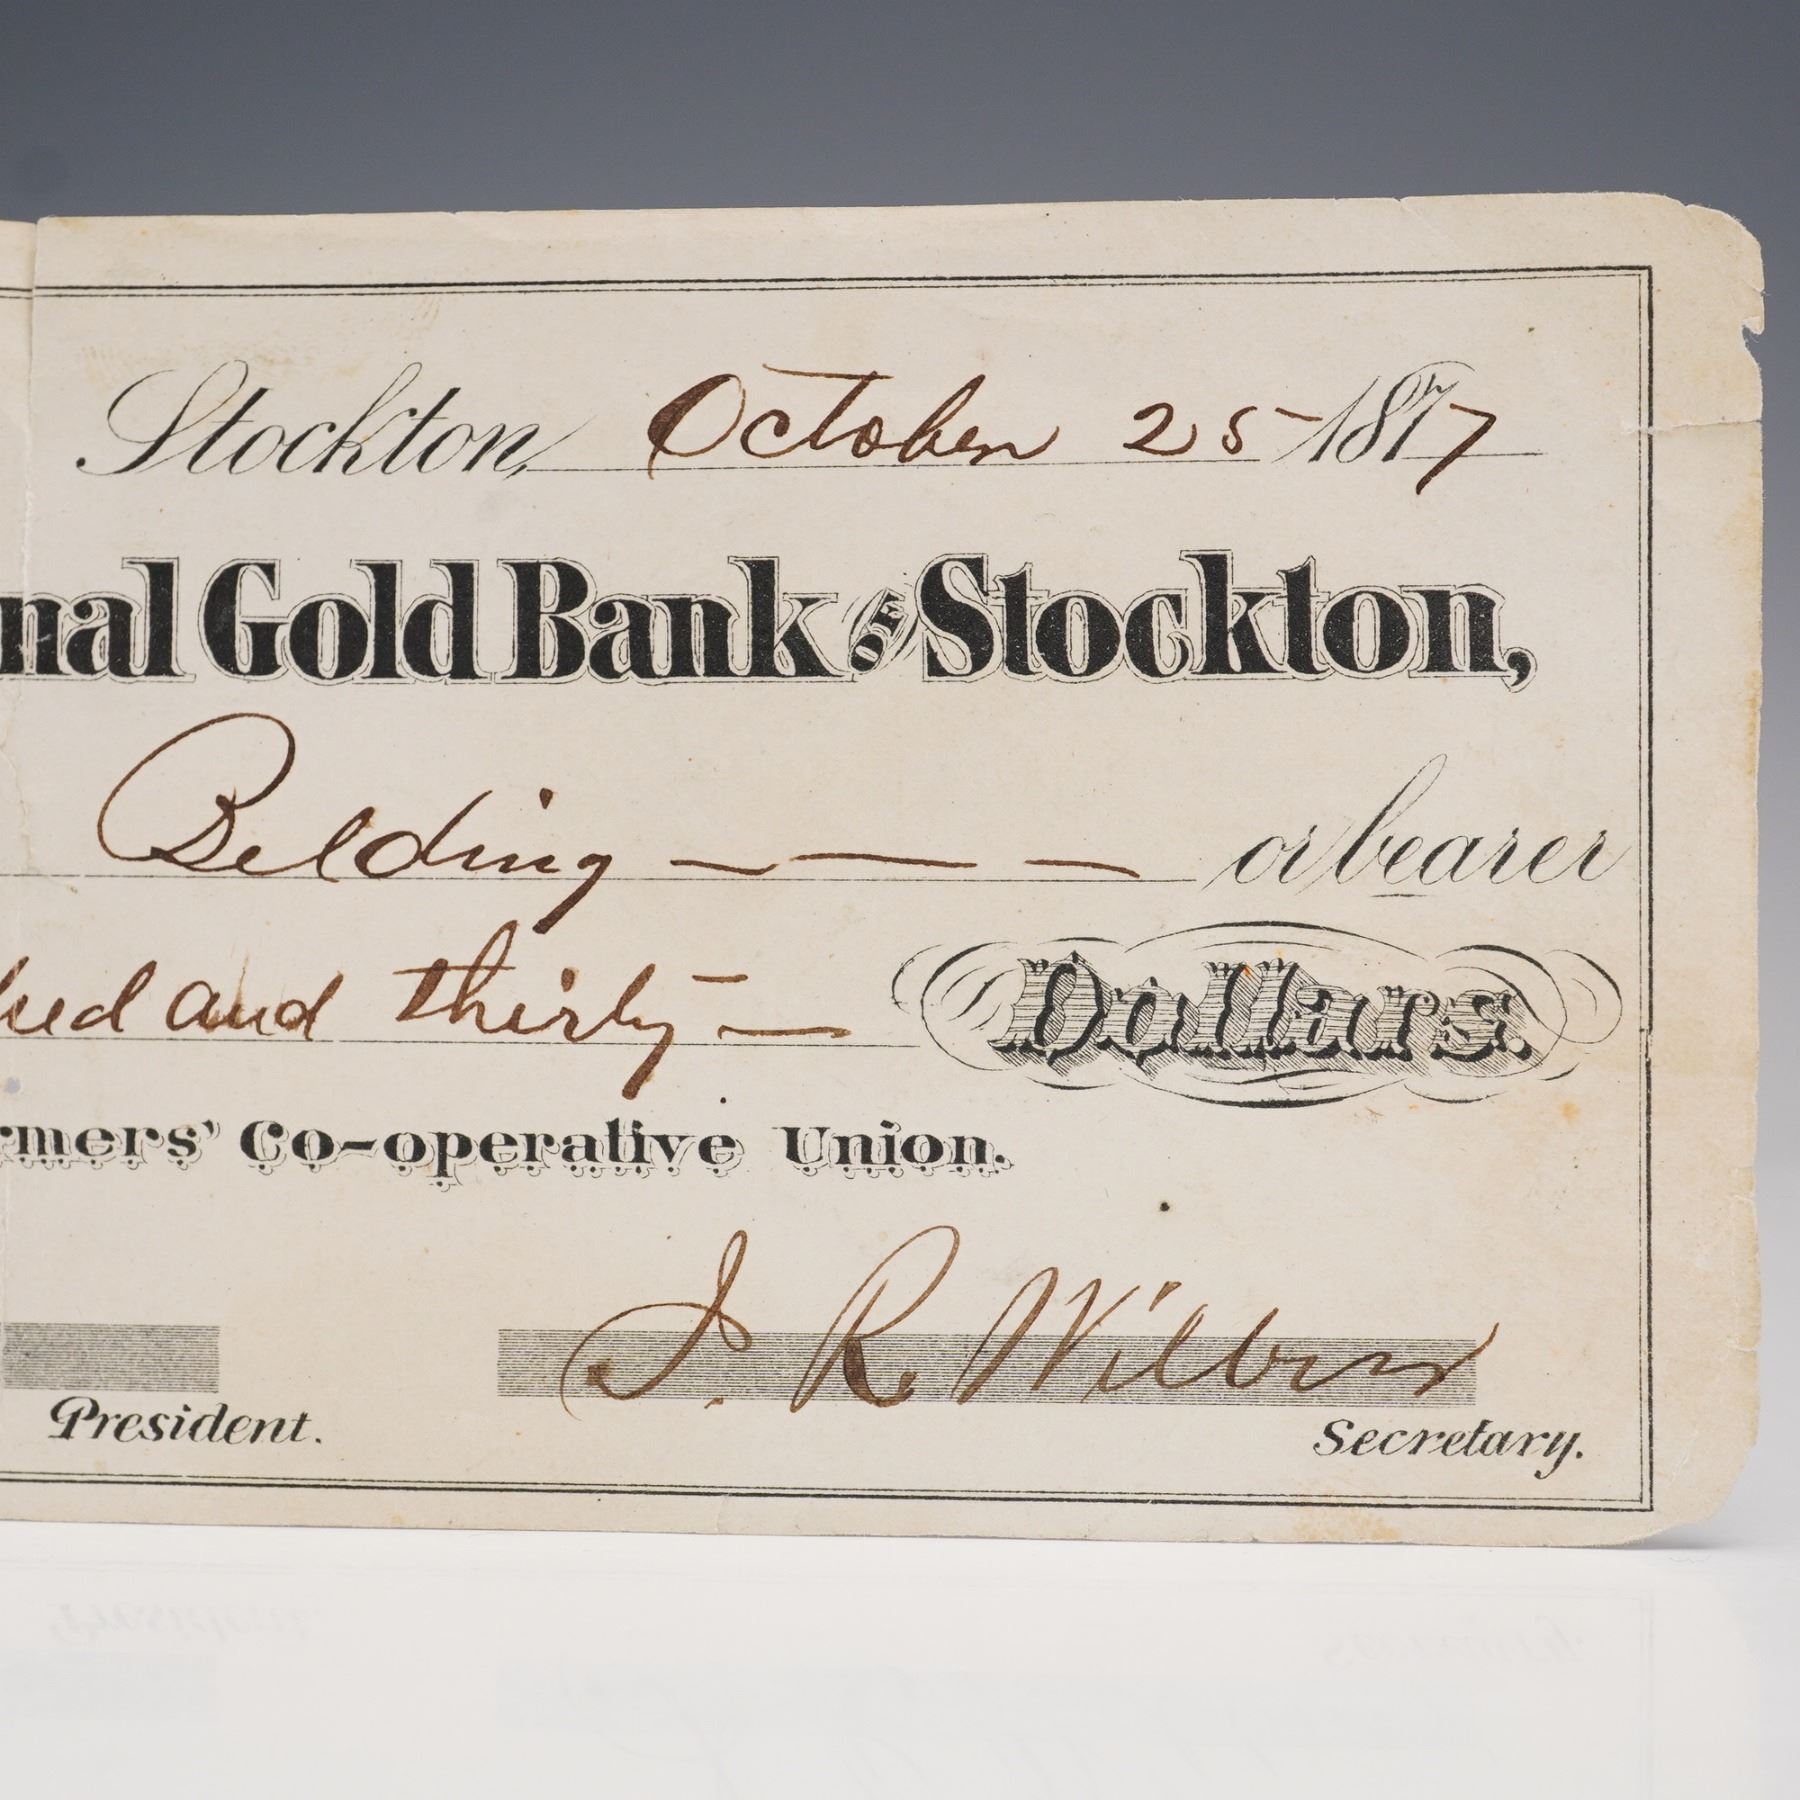 Stockton, October 25 1877
nal Gold Bank OF Stockton,
Belding or bearer
and thirty Dollars.
rmers' Co-operative Union.
J. R. Wilbur
President.
Secretary.